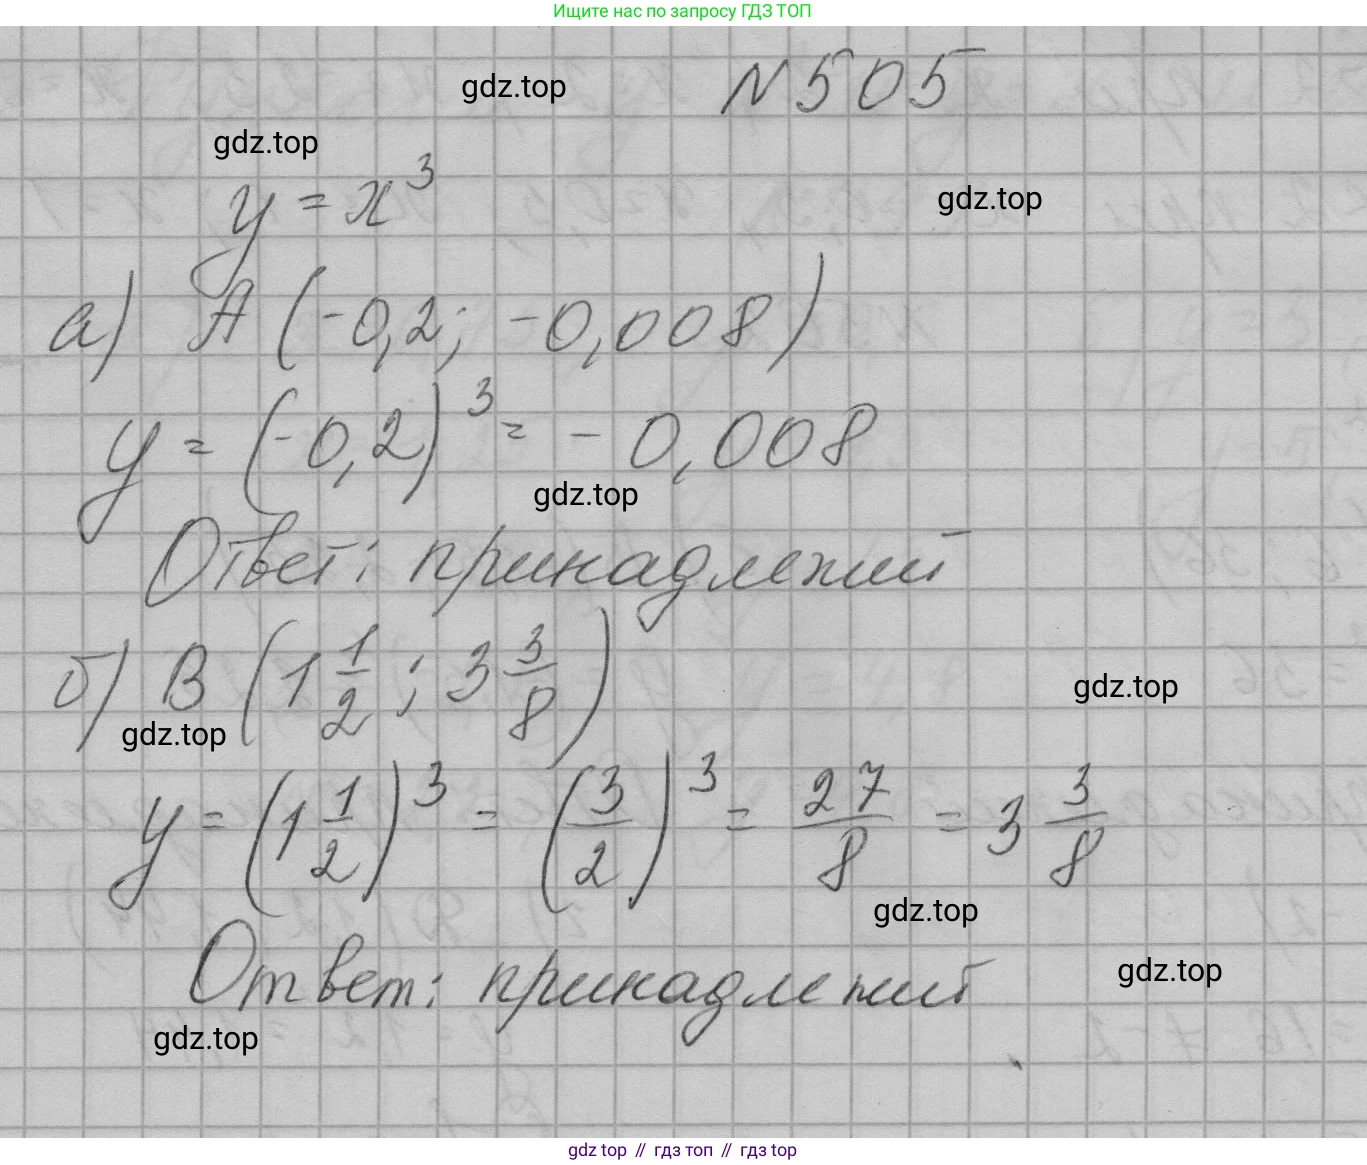 Ищите нас по запросу ГДЗ ТОП
gdz.top
N 505
gdz.top
y = x³
gdz.top
а) A (-0,2; -0,008)
y = (-0,2)³ = -0,008
gdz.top
Ответ: принадлежит
б) B (1 1/2; 3 3/8)
gdz.top
gdz.top
y = (1 1/2)³ = (3/2)³ = 27/8 = 3 3/8
gdz.top
Ответ: принадлежит
gdz.top
gdz.top
gdz top // гдз топ // gdz top